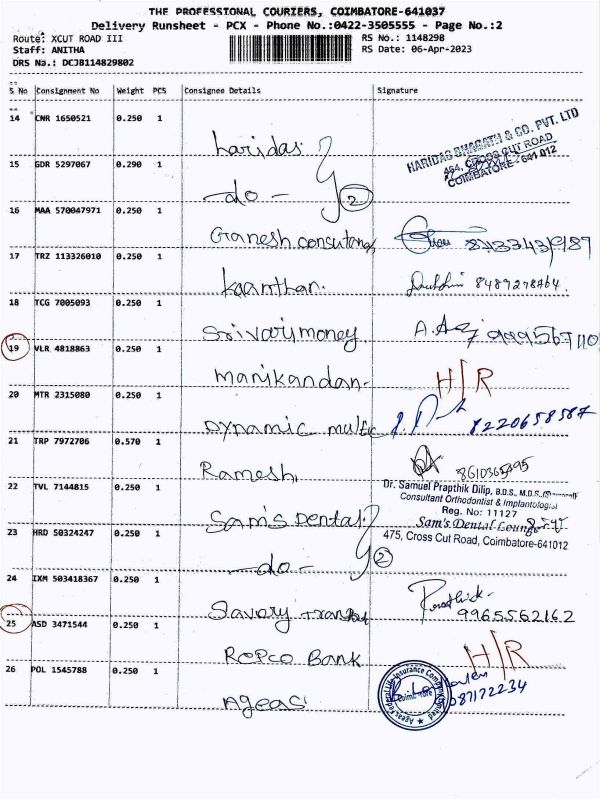 THE PROFESSIONAL COURIERS, COIMBATORE-641037
Delivery Runsheet - PCX - Phone No.:0422-3505555 - Page No.:2
Route: XCUT ROAD III RS No.: 1148298
Staff: ANITHA RS Date: 06-Apr-2023
DRS No.: DCJB114829802
S No Consignment No Weight PCS Consignee Details Signature
14 CNR 1650521 0.250 1
haridas HARIDAS BHAGATH & CO. PVT. LTD
464, CROSS CUT ROAD
COIMBATORE - 641 012
15 GDR 5297067 0.290 1
-do- 2
16 MAA 570047971 0.250 1
Ganesh
17 TRZ 113326010 0.250 1
Kaanthan. 8489278464.
18 TCG 7005093 0.250 1
Srivari money A.
19 VLR 4818863 0.250 1
Manikandan H/R
20 MTR 2315080 0.250 1
Dynamic 8220658587
21 TRP 7972706 0.570 1
Ramesh
Dr. Samuel Prapthik Dilip, B.D.S., M.D.S.,
Consultant Orthodontist & Implantologist
Reg. No: 11127
22 TVL 7144815 0.250 1
Sam's Dental Sam's Dental Lounge
475, Cross Cut Road, Coimbatore-641012
23 HRD 50324247 0.250 1
-do- 2
24 IXM 503418367 0.250 1
Savory 9965562162
25 ASD 3471544 0.250 1
Repco Bank H/R
26 POL 1545788 0.250 1
Ageas